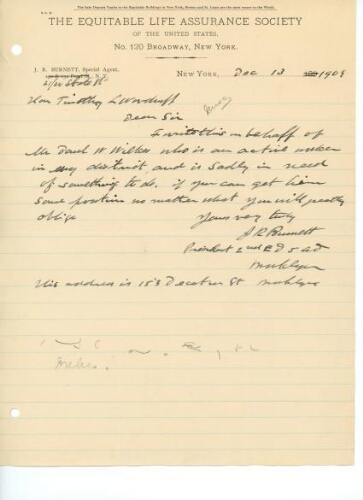 The Safe Deposit Vaults in the Equitable Buildings in New York, Boston and St. Louis are the most secure in the World.
THE EQUITABLE LIFE ASSURANCE SOCIETY
OF THE UNITED STATES,
No. 120 BROADWAY, NEW YORK.
J. R. BURNETT, Special Agent,
NEW YORK, Dec 13 1909
Hon Timothy L Woodruff
Dear Sir
I write this in behalf of
Mr Daul W Wilkes who is an active worker
in my district, and is sadly in need
of something to do. if you can get him
some position no matter what you will greatly
oblige Yours very truly
J R Burnett
President 2nd E D 5 A D
Brooklyn
His address is 153 Decatur St Brooklyn